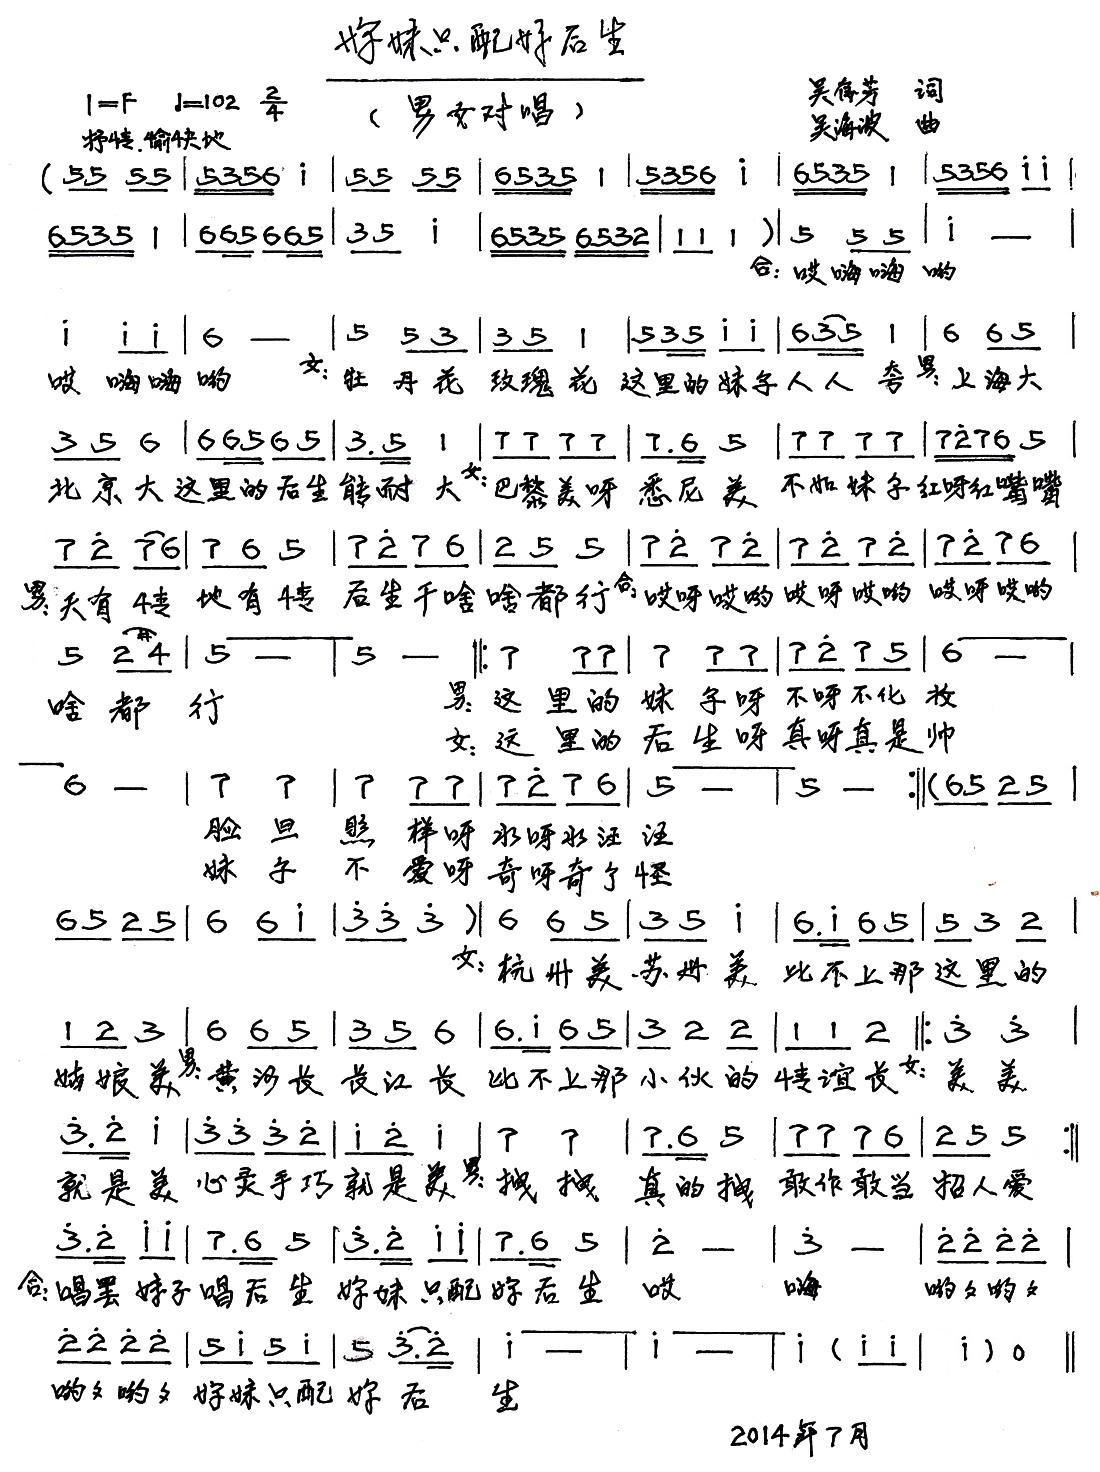 好妹只配好后生
1=F ♩=102 2/4
(男女对唱)
吴存芳 词
抒情.愉快地
吴海波 曲
(55 55|5356 i|55 55|6535 1|5356 i|6535 1|5356 ii|
6535 1|665 665|35 i|6535 6532|11 1)|5 55|i —|
合:哎嗨嗨 哟
i ii|6 —|5 53|35 1|535 ii|635 1|6 65|
哎 嗨嗨哟 女:牡丹花 玫瑰花 这里的妹子人人 夸 男:上海大
35 6|665 65|3.5 1|77 77|7.6 5|77 77|7276 5|
北京大 这里的后生能耐大 女:巴黎美呀 悉尼美 不如妹子红呀红嘴嘴
72 76|76 5|72 76|25 5|72 72|72 72|72 76|
男:天有情 地有情 后生干啥啥都行 合:哎呀哎哟哎呀哎哟 哎呀哎哟
5 2#4|5 —|5 —|:7 77|7 77|72 75|6 —|
啥都行 男:这里的妹子呀不呀不化妆
女:这里的后生呀真呀真是帅
6 —|7 7|7 77|72 76|5 —|5 —:|(65 25|
脸旦照样呀水呀水汪汪
妹子不爱呀奇呀奇了怪
65 25|6 6i|33 3)|6 65|35 i|6.i 65|53 2|
女:杭州美 苏州美 比不上那这里的
12 3|6 65|35 6|6.i 65|32 2|11 2|:3 3|
姑娘美 男:黄河长 长江长 比不上那小伙的情谊长 女:美美
3.2 i|33 32|i2 i|7 7|7.6 5|77 76|25 5:|
就是美 心灵手巧就是美 男:拽拽 真的拽 敢作敢当 招人爱
3.2 ii|7.6 5|3.2 ii|7.6 5|2 —|3 —|22 22|
合:唱罢妹子唱后生 好妹只配好后生 哎 嗨 哟々哟々
22 22|5i 5i|5 3.2|i —|i —|i (ii|i) 0‖
哟々哟々 好妹只配好后 生
2014年7月